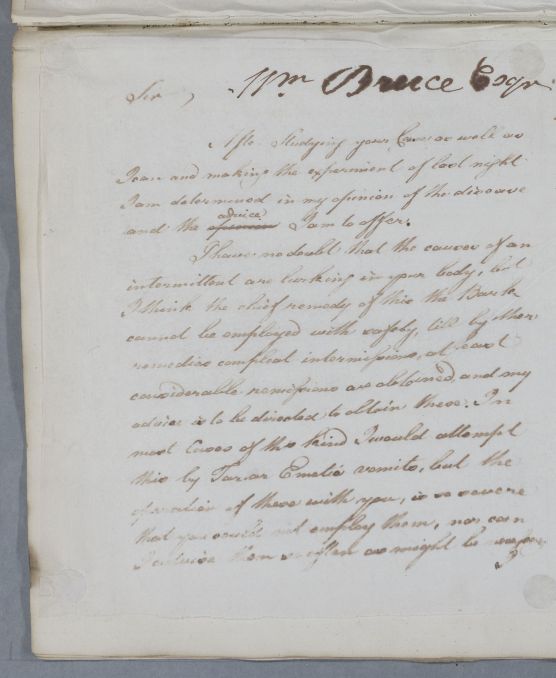 Wm Bruce Esqr
Sir,
After Studying your Case as well as
I can and making the experiment of last night
I am determined in my opinion of the disease
advice
and the opinion I am to offer.
I have no doubt that the causes of an
intermittent are lurking in your body, but
I think the chief remedy of this the Bark
cannot be employed with safety, till by other
remedies compleat intermissions, at least
considerable remissions are obtained, and my
advice is to be directed to obtain these. In
most Cases of this kind I would attempt
this by Tartar Emetic vomits, but the
operation of these with you, is so severe
that you could not employ them, nor can
I advise them so often as might be